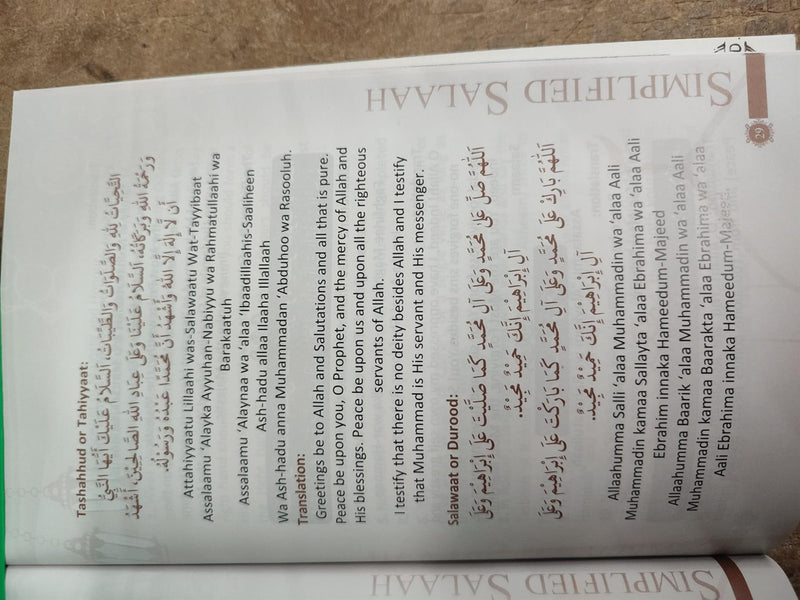 Tashahhud or Tahiyyaat:
التَّحِيَّاتُ لِلّٰهِ وَالصَّلَوَاتُ وَالطَّيِّبَاتُ، اَلسَّلَامُ عَلَيْكَ أَيُّهَا النَّبِيُّ
وَرَحْمَةُ اللهِ وَبَرَكَاتُهُ، السَّلَامُ عَلَيْنَا وَعَلَى عِبَادِ اللهِ الصَّالِحِيْنَ، أَشْهَدُ
أَن لَّا إِلٰهَ إِلَّا اللهُ وَأَشْهَدُ أَنَّ مُحَمَّدًا عَبْدُهُ وَرَسُوْلُهُ.
Attahiyyaatu Lillaahi was-Salawaatu Wat-Tayyibaat
Assalaamu ‘Alayka Ayyuhan-Nabiyyu wa Rahmatullaahi wa
Barakaatuh
Assalaamu ‘Alaynaa wa ‘alaa ‘Ibaadillaahis-Saaliheen
Ash-hadu allaa Ilaaha Illallaah
Wa Ash-hadu anna Muhammadan ‘Abduhoo wa Rasooluh.
Translation:
Greetings be to Allah and Salutations and all that is pure.
Peace be upon you, O Prophet, and the mercy of Allah and
His blessings. Peace be upon us and upon all the righteous
servants of Allah.
I testify that there is no deity besides Allah and I testify
that Muhammad is His servant and His messenger.
Salawaat or Durood:
اَللّٰهُمَّ صَلِّ عَلَى مُحَمَّدٍ وَعَلَى آلِ مُحَمَّدٍ كَمَا صَلَّيْتَ عَلَى إِبْرَاهِيْمَ وَعَلَى
آلِ إِبْرَاهِيْمَ إِنَّكَ حَمِيْدٌ مَّجِيْدٌ.
اَللّٰهُمَّ بَارِكْ عَلَى مُحَمَّدٍ وَعَلَى آلِ مُحَمَّدٍ كَمَا بَارَكْتَ عَلَى إِبْرَاهِيْمَ وَعَلَى
آلِ إِبْرَاهِيْمَ إِنَّكَ حَمِيْدٌ مَّجِيْدٌ.
Allaahumma Salli ‘alaa Muhammadin wa ‘alaa Aali
Muhammadin kamaa Sallayta ‘alaa Ebrahima wa ‘alaa Aali
Ebrahim innaka Hameedum-Majeed
Allaahumma Baarik ‘alaa Muhammadin wa ‘alaa Aali
Muhammadin kamaa Baarakta ‘alaa Ebrahima wa ‘alaa
Aali Ebrahima innaka Hameedum-Majeed.
SIMPLIFIED SALAAH
29
SIMPLIFIED SALAAH